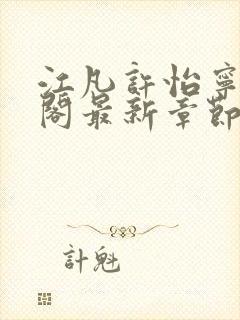 江凡許怡寧
閣最新章節
計魁